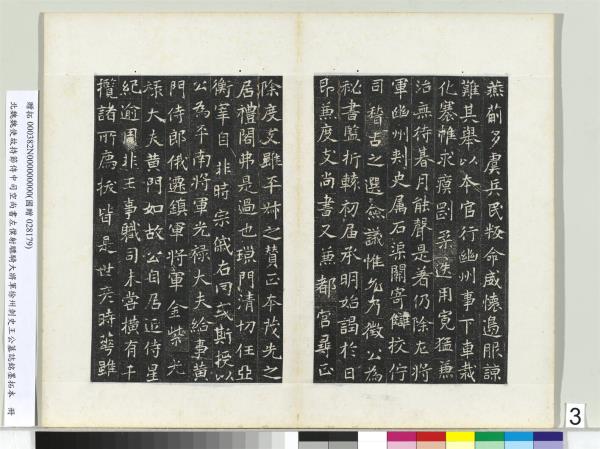 燕薊多虞兵民叛命威懷邊服諒
難其舉以本官行幽州事下車裁
化褰帷求瘼剛柔迭用寬猛兼
治無待朞月能聲是著仍除左將
軍幽州刺史属石渠闕寄讎校佇
司稽古之選僉議惟允乃徵公為
秘書監折轅初届承明始謁於日
即兼度支尚書又兼都官尋正
除度支雖平叔之賛正本茂先之
居禮閣弗是過也瑣門清切任亞
衡宰自非時宗儀右罔或斯授以
公為平南將軍光祿大夫給事黄
門侍郎俄遷鎮軍將軍金紫光
祿大夫黄門如故公自居近侍星
紀逾周非王事職司未嘗橫有干
攬諸所薦拔皆是世彦時英雖
贈拓 000382N000000000(國贈 028179)
北魏魏使故持節侍中司空尚書左僕射驃騎大將軍徐州刺史王公墓誌銘墨拓本 冊
3